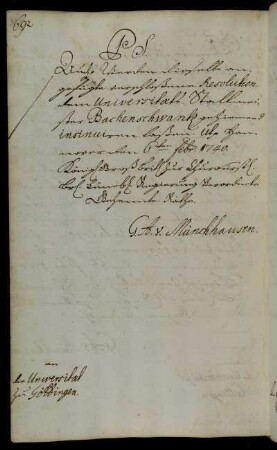 692
P. S.
Auch Werden dieselbe an
gefügte verschloßene Resolution
dem Universitäts Stallmei
ster Bachenschwantz geziemend
insinuiren laßen. Uts. Han
nover den 6ten Febr 1740.
Königl. Groß britt. zur Churfürstl.
Br. Lünebl. Regierung Verordnete
Geheimte Räthe.
G. A. v. Münchhausen.
an
die Universität
zu Göttingen.